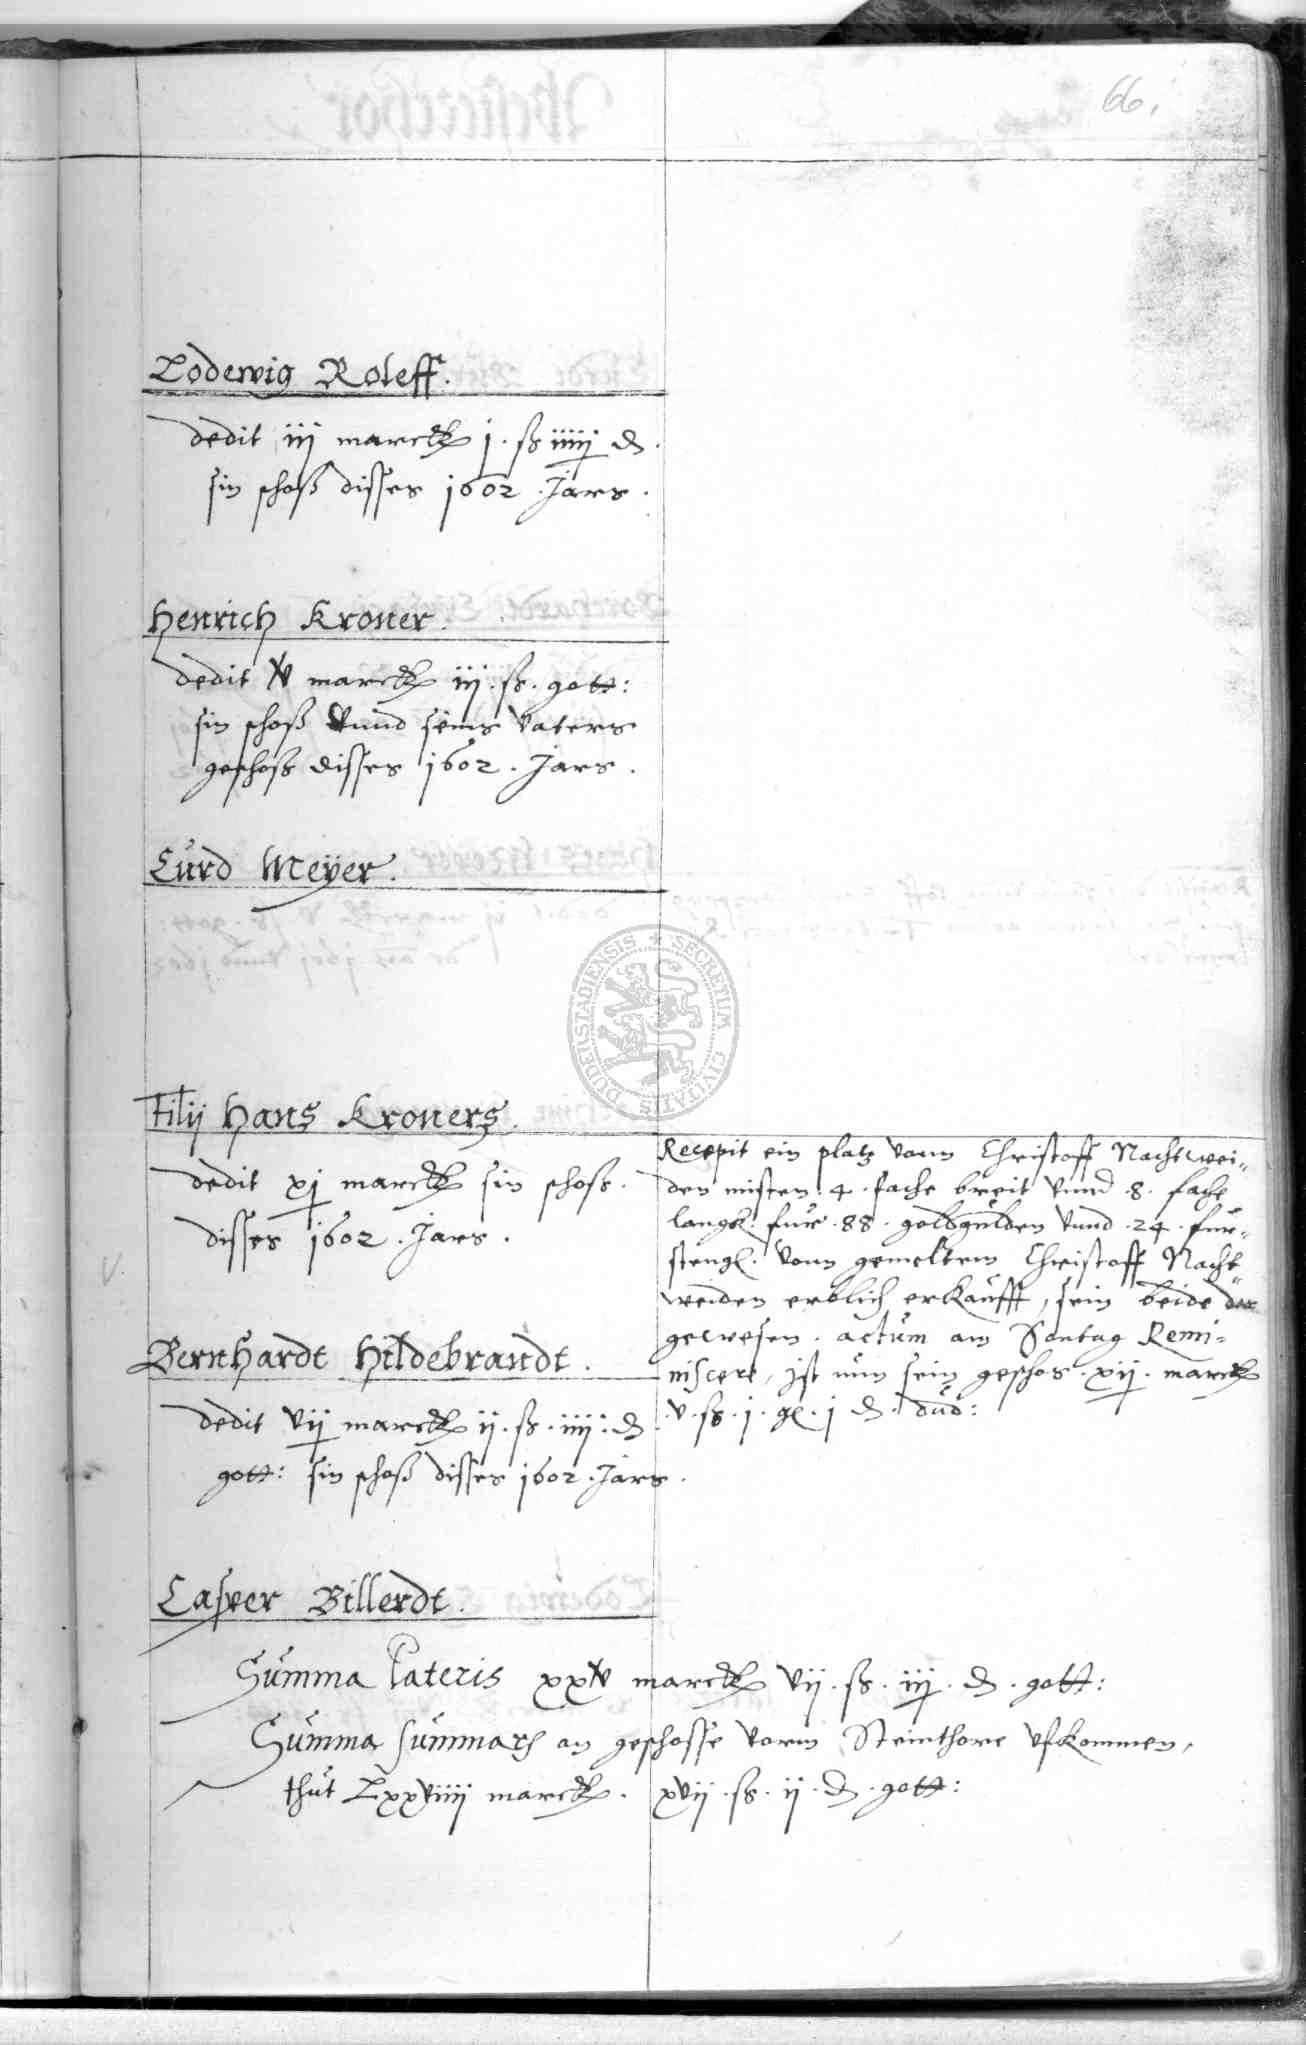 66.
Lodewig Roleff.
dedit iij marck j. ß iiiij ₰.
sin schoß disses 1602. Jars.
Henrich Kroner.
dedit v marck iij. ß. gott:
sin schoß vnnd seins vaters
geschoß disses 1602. Jars.
Curd Meÿer.
Filij Hans Kroners.
dedit xj marck sin schoß.
disses 1602. Jars.
Recepit ein platz vonn Christoff Nachtwei„
den misten. 4. fache breit vnnd .8. fache
langk. fur .88. goldgulden vnnd .24. fur„
stengl. vonn gemeltem Christoff Nacht„
weiden erblich erkaufft, sein beide dar
gewesen. actum am Sontag Remi„
niscere, Jst nun sein geschos. xij. marck
v. ß. j. gl. j ₰. dud:
V.
Bernhardt Hildebrandt.
dedit vij marck ij. ß. iiij. ₰.
gott: sin schoß disses 1602. Jars.
Casper Billerdt.
Summa Lateris xxv marck vij. ß. iij. ₰. gott:
Summa summarum an geschosse vorm Steinthore vfkommen,
thut Lxxviiij marck. xvij. ß. ij. ₰. gott:
SECRETUM CIVITATIS DUDERSTADIENSIS